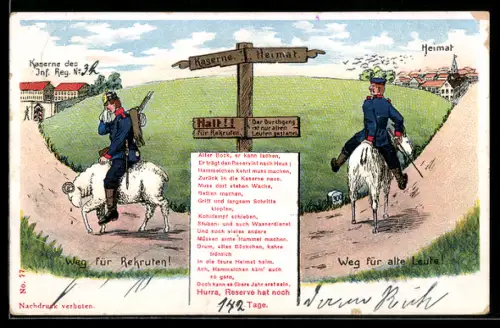 Kaserne des
Inf. Reg. Nr.
Kaserne. Heimat.
Heimat
Halt!!
für Rekruten.
Der Durchgang
ist nur alten
Leuten gestattet.
Alter Bock, er kann lachen,
Er trägt den Reservist nach Haus;
Hammelchen kehrt muss machen,
Zurück in die Kaserne naus.
Muss dort stehen Wache,
Betten machen,
Griff und langsam Schritte
klopfen,
Kohldampf schieben,
Stuben- und auch Wasserdienst
Und noch vieles andere
Müssen arme Hammel machen.
Drum, altes Böckchen, kehre
fröhlich
In die teure Heimat heim.
Ach, Hammelchen käm' auch
so gern,
Doch kann es übers Jahr erst sein.
Hurra, Reserve hat noch
142 Tage.
Weg für Rekruten!
Weg für alte Leute!
No. 77
Nachdruck verboten.